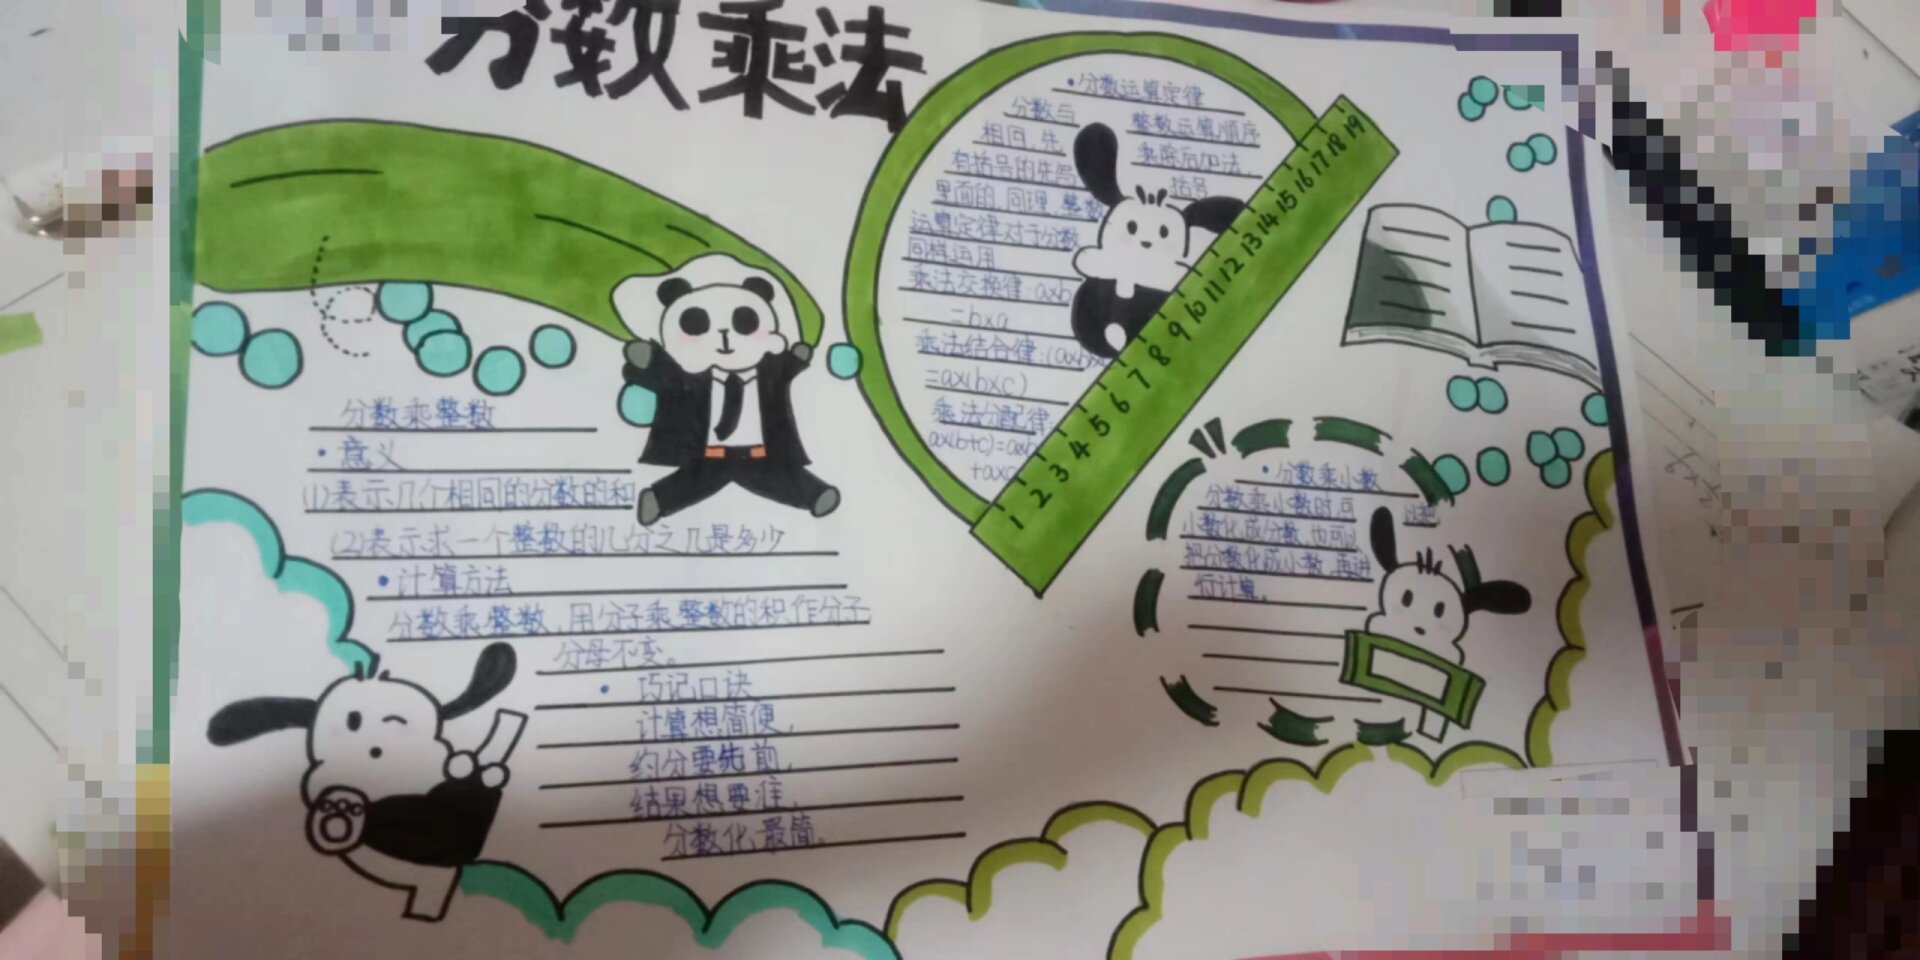 分数乘法
分数乘整数
• 意义
(1)表示几个相同的分数的和
(2)表示求一个整数的几分之几是多少
• 计算方法
分数乘整数,用分子乘整数的积作分子
分母不变。
• 巧记口诀
计算想简便,
约分要先前,
结果想要准,
分数化最简。
• 分数运算定律
分数与 整数运算顺序
相同,先 乘除后加法,
有括号的先局 括号
里面的,同理,整数
运算定律对于分数
同样运用
乘法交换律:a×b
=b×a
乘法结合律:(a×b)×
=a×(b×c)
乘法分配律:
a×(b+c)=a×b
+a×c
1 2 3 4 5 6 7 8 9 10 11 12 13 14 15 16 17 18 19
• 分数乘小数
分数乘小数时,可 以把
小数化成分数,也可以
把分数化成小数,再进
行计算。